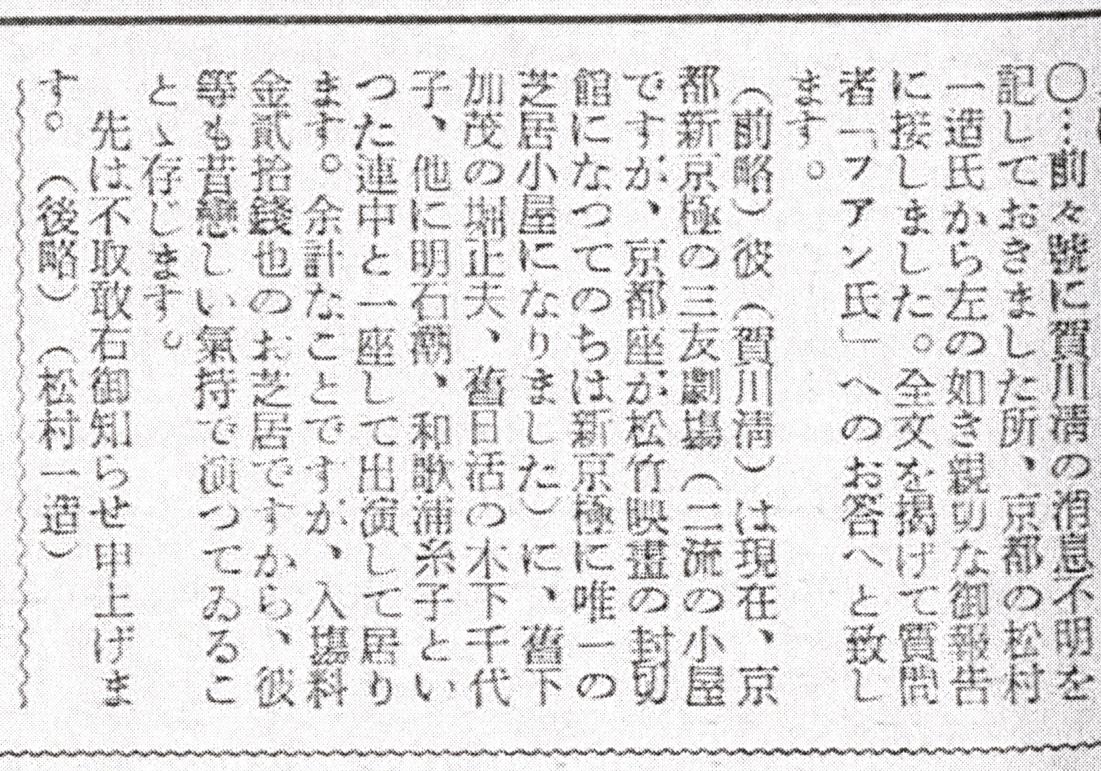 〇…前々號に賀川淸の消息不明を
記しておきました所、京都の松村
一造氏から左の如き親切な御報告
に接しました。全文を揭げて質問
者「フアン氏」へのお答へと致し
ます。
(前略)彼(賀川淸)は現在、京
都新京極の三友劇場(二流の小屋
ですが、京都座が松竹映畫の封切
館になつてのちは新京極に唯一の
芝居小屋になりました)に、舊下
加茂の堀正夫、舊日活の木下千代
子、他に明石潮、和歌浦糸子とい
つた連中と一座して出演して居り
ます。余計なことですが、入場料
金貳拾錢也のお芝居ですから、彼
等も昔戀しい氣持で演つてゐるこ
とゝ存じます。
先は不取敢右御知らせ申上げま
す。(後略)(松村一造)